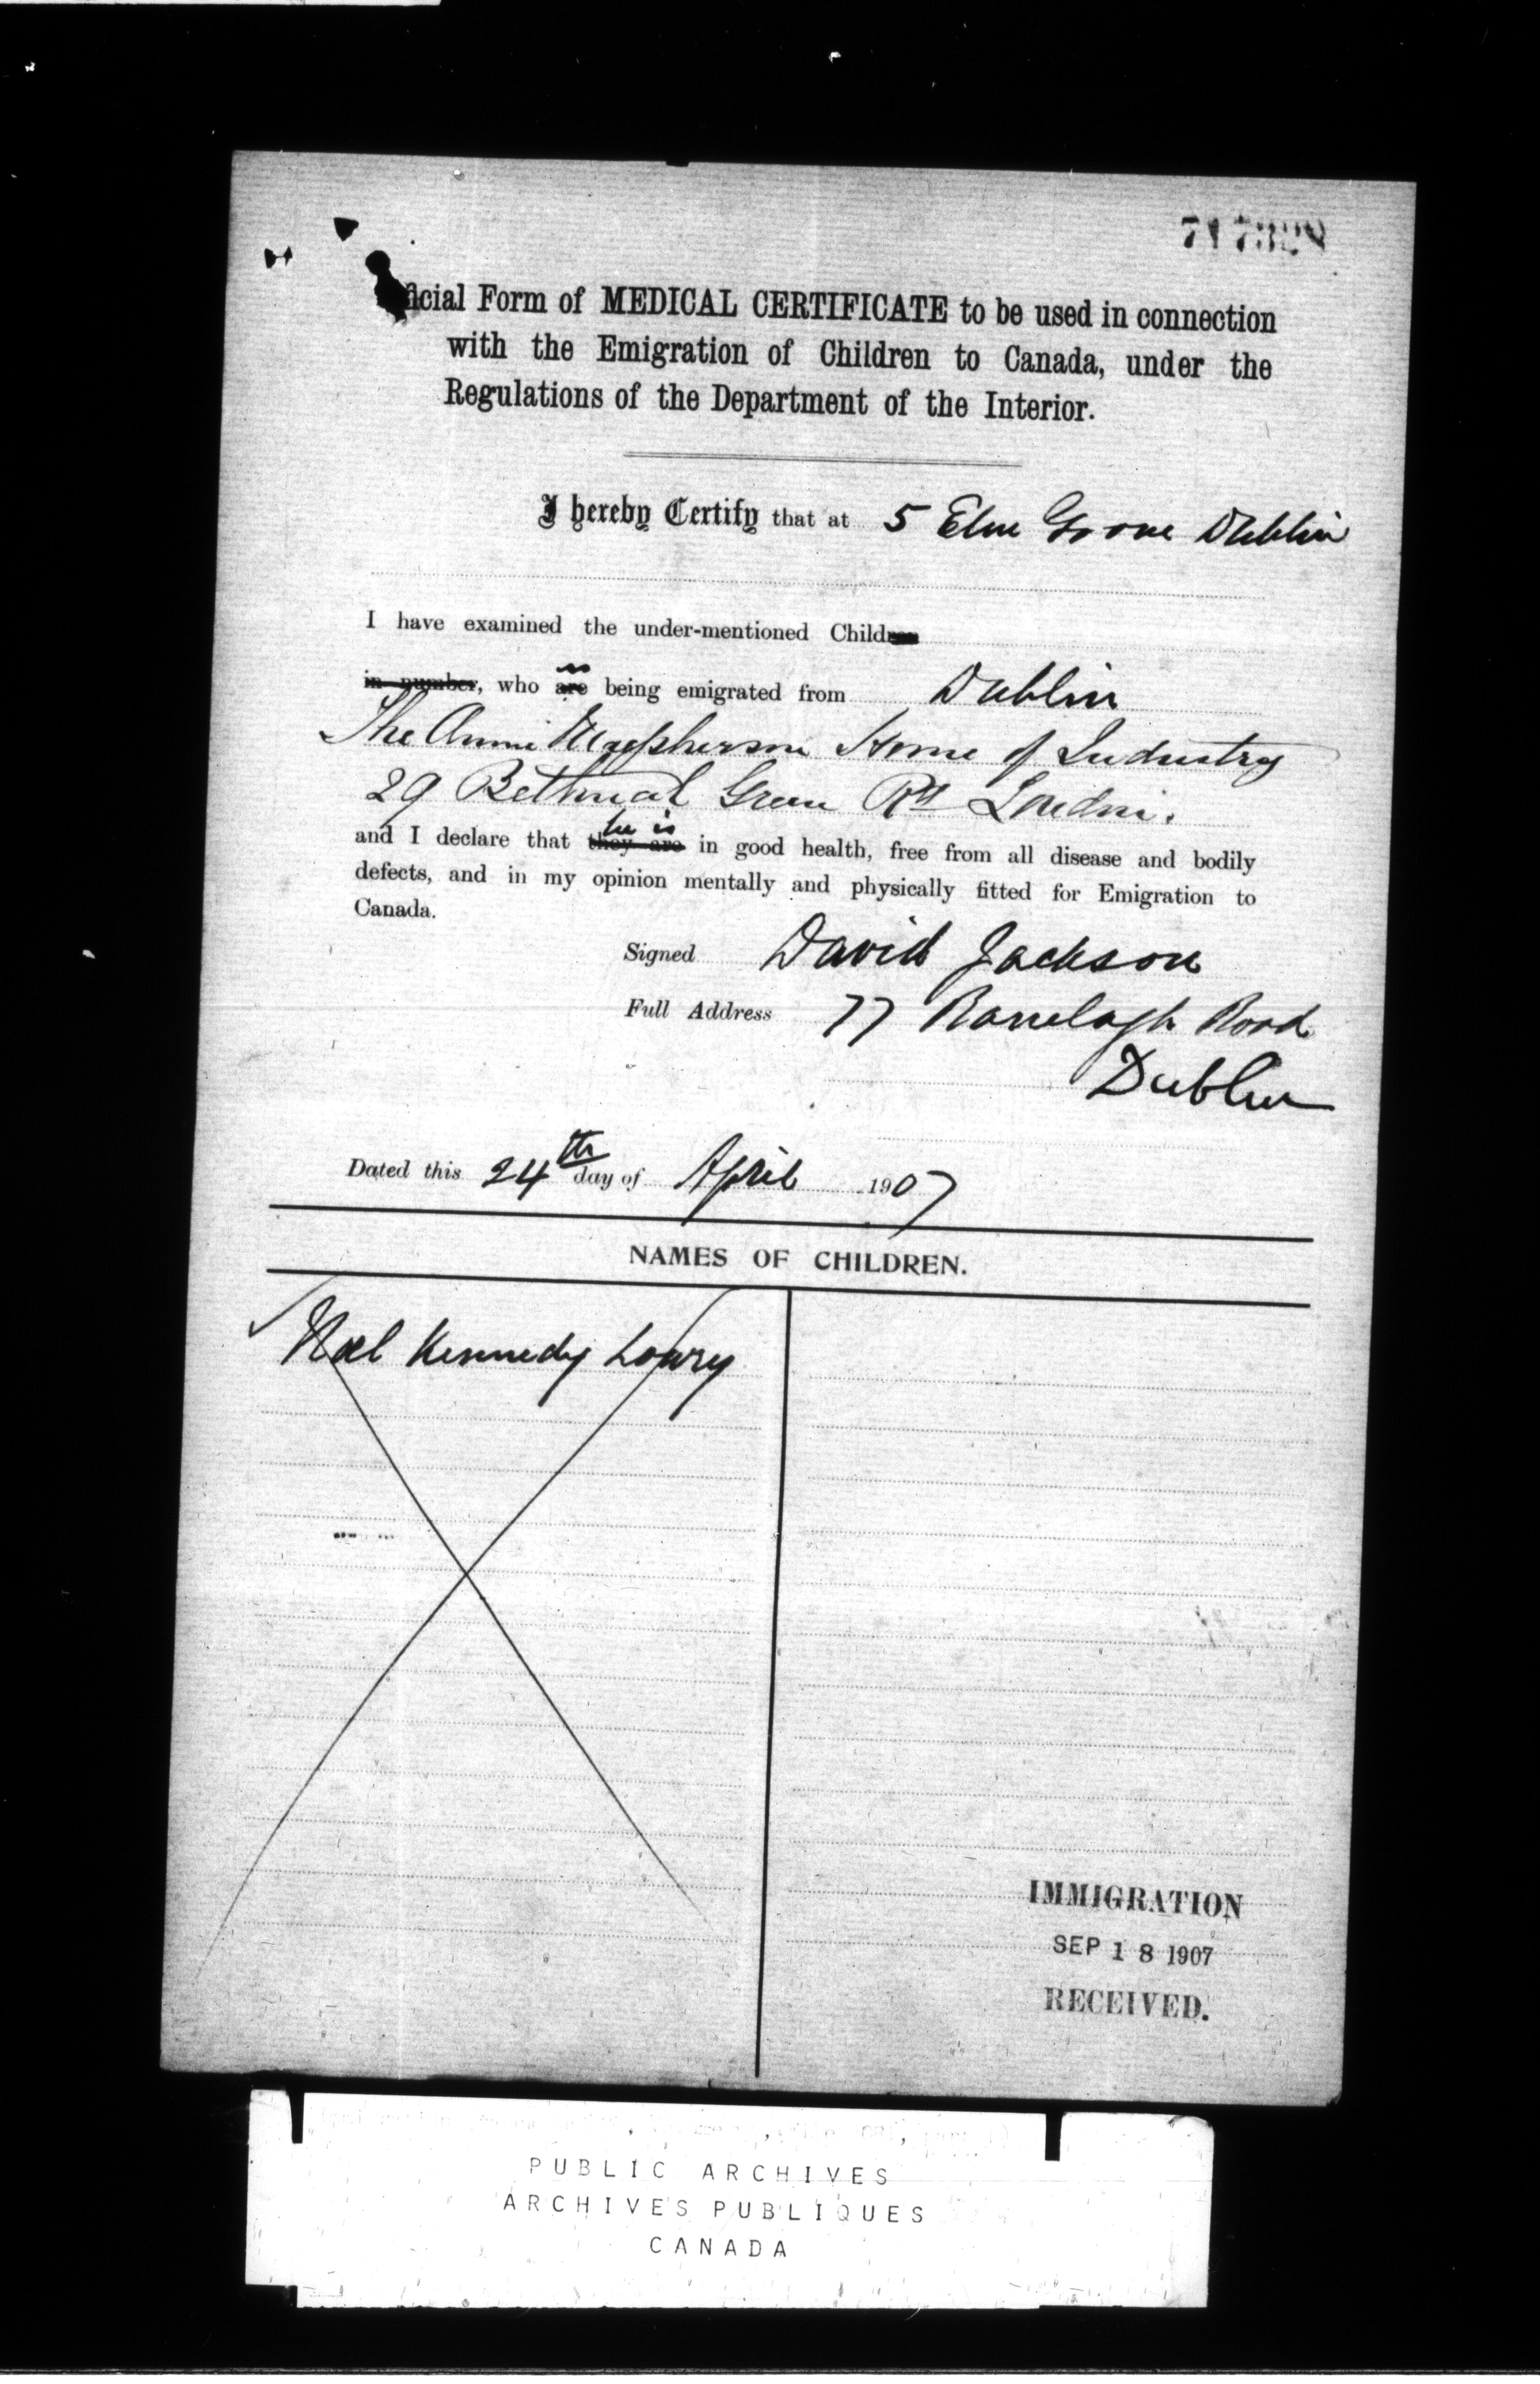 ficial Form of MEDICAL CERTIFICATE to be used in connection
with the Emigration of Children to Canada, under the
Regulations of the Department of the Interior.
I hereby Certify that at 5 Elm Grove Dublin
I have examined the under-mentioned Children
in number, who are being emigrated from Dublin
The Annie Macpherson Home of Industry
29 Bethnal Green Rd London.
he is
and I declare that they are in good health, free from all disease and bodily
defects, and in my opinion mentally and physically fitted for Emigration to
Canada.
Signed David Jackson
Full Address 77 Ranelagh Road
Dublin
Dated this 24th day of April 1907
NAMES OF CHILDREN.
Noel Kennedy Lowry
IMMIGRATION
SEP 18 1907
RECEIVED.
PUBLIC ARCHIVES
ARCHIVES PUBLIQUES
CANADA